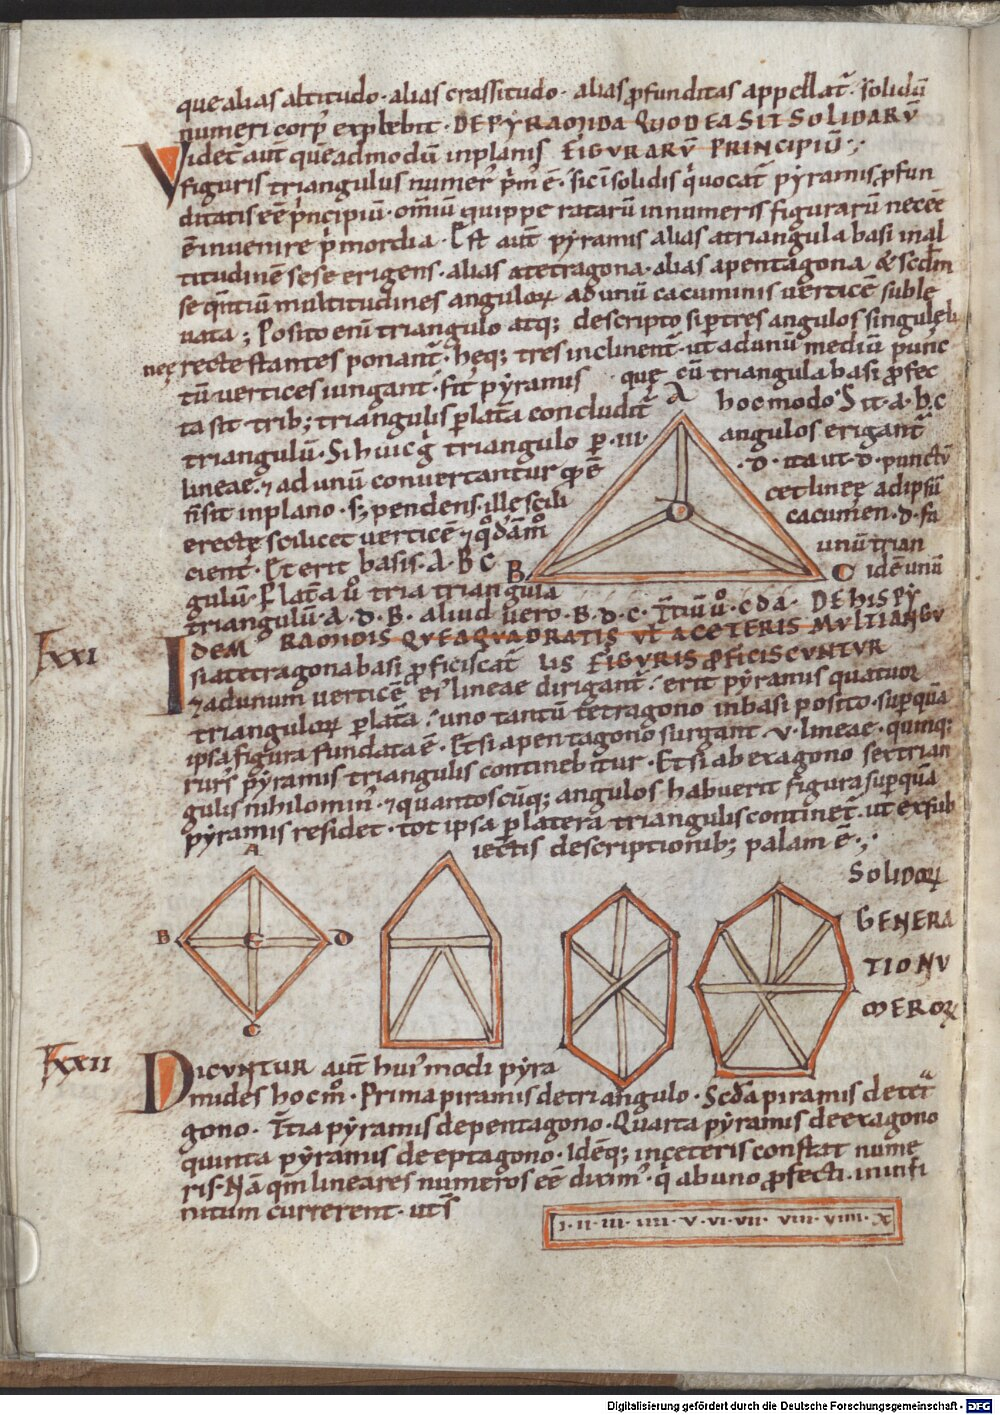 que alias altitudo · alias crassitudo · alias ꝓfunditas appellat̄ · solidū
numeri corp᾽ explebit · DE PYRAMIDA QUOD EA SIT SOLIDARŪ
Videt᾽ aut̄ quēadmodū inplanis FIGURARŪ PRINCIPIŪ
figuris triangulus numer᾽ p̄m᾽ ē · sic ī solidis q̇ uocat̄ pyramis ꝓfun
ditatis eē p̄ncipiū · om̄iū quippe ratarū innumeris figurarū necēē
ē inuenire p̄mordia · Est aut̄ pyramis alias atriangula basi inal
titudinē sese erigens · alias atetragona · alias apentagona & scdm
se q̄ntiū multitudines anguloꝝ ad unū cacuminis uerticē suble
uata ; Posito enī triangulo atq; descripto si ꝑ tres angulos singule
neę recte stantes ponant̄ · hęq; tres inclinent̄ · ut adunū mediū punc
tū uertices iungant̄ · fit pyramis quę cū triangula basi ꝓfec
ta sit trib; triangulis ꝑ lat̄a concludit̄ A hoc modo · Sit · a · b · c
triangulū · Si huic ḡ triangulo ꝑ · III · angulos erigant̄
lineae · ⁊ ad unū conuertantur · D · ita ut · D · punctū
n̄ sit inplano · s; pendens · ille scili cet lineę adipsū
erecte scilicet uerticē ⁊ q̊dām̊ cacumen · d · fa
cient̄ · Et erit basis · A · B C B C unū trian
gulū · ꝑ lat̄a ů tria triangula idē unū
triangulū · A · D · B · aliud uero · B · D · C · T̄tiū ů · C D A · DE HIS PY
FXXI IDEM RAMIDIS QUE A QUADRATIS UL A CETERIS MULTIANGU
si atetragona basi ꝓficiscat̄ LIS FIGURIS ꝓFICISCUNTUR
⁊ adunum uerticē ei᾽ lineae dirigant̄ · erit pyramis quatuor
trianguloꝝ ꝑ lat̄a · uno tantū tetragono in basi posito · sup quā
ipsa figura fundata ē · Et si apentagono surgant · V · lineae · quinq;
rurs᾽ pyramis triangulis continebitur · Et si ab exagono sex trian
gulis nihilomin᾽ · ⁊ quantoscūq; angulos habuerit figura sup quā
pyramis residet · tot ipsa ꝑ latera triangulis continet̄ · ut ex sub
iectis descriptionib; palam ē ·
A
B E D
C
SOLIDOꝝ
GENERA
TIO NU
MEROꝝ
FXXII DICUNTUR aut̄ hui᾽modi pyra
mides hoc m̊ · Prima piramis de triangulo · Scd̄a piramis de tet͛
gono · T̄tia pyramis de pentagono · Quarta pyramis de exagono
quinta pyramis de eptagono · Idēq; in ceteris constat nume
ris · Nā q̄m lineares numeros eē dixim᾽ · q̇ ab uno ꝓfecti · in infi
nitum currerent · uts̄
I · II · III · IIII · V · VI · VII · VIII · VIIII · X
Digitalisierung gefördert durch die Deutsche Forschungsgemeinschaft - DFG